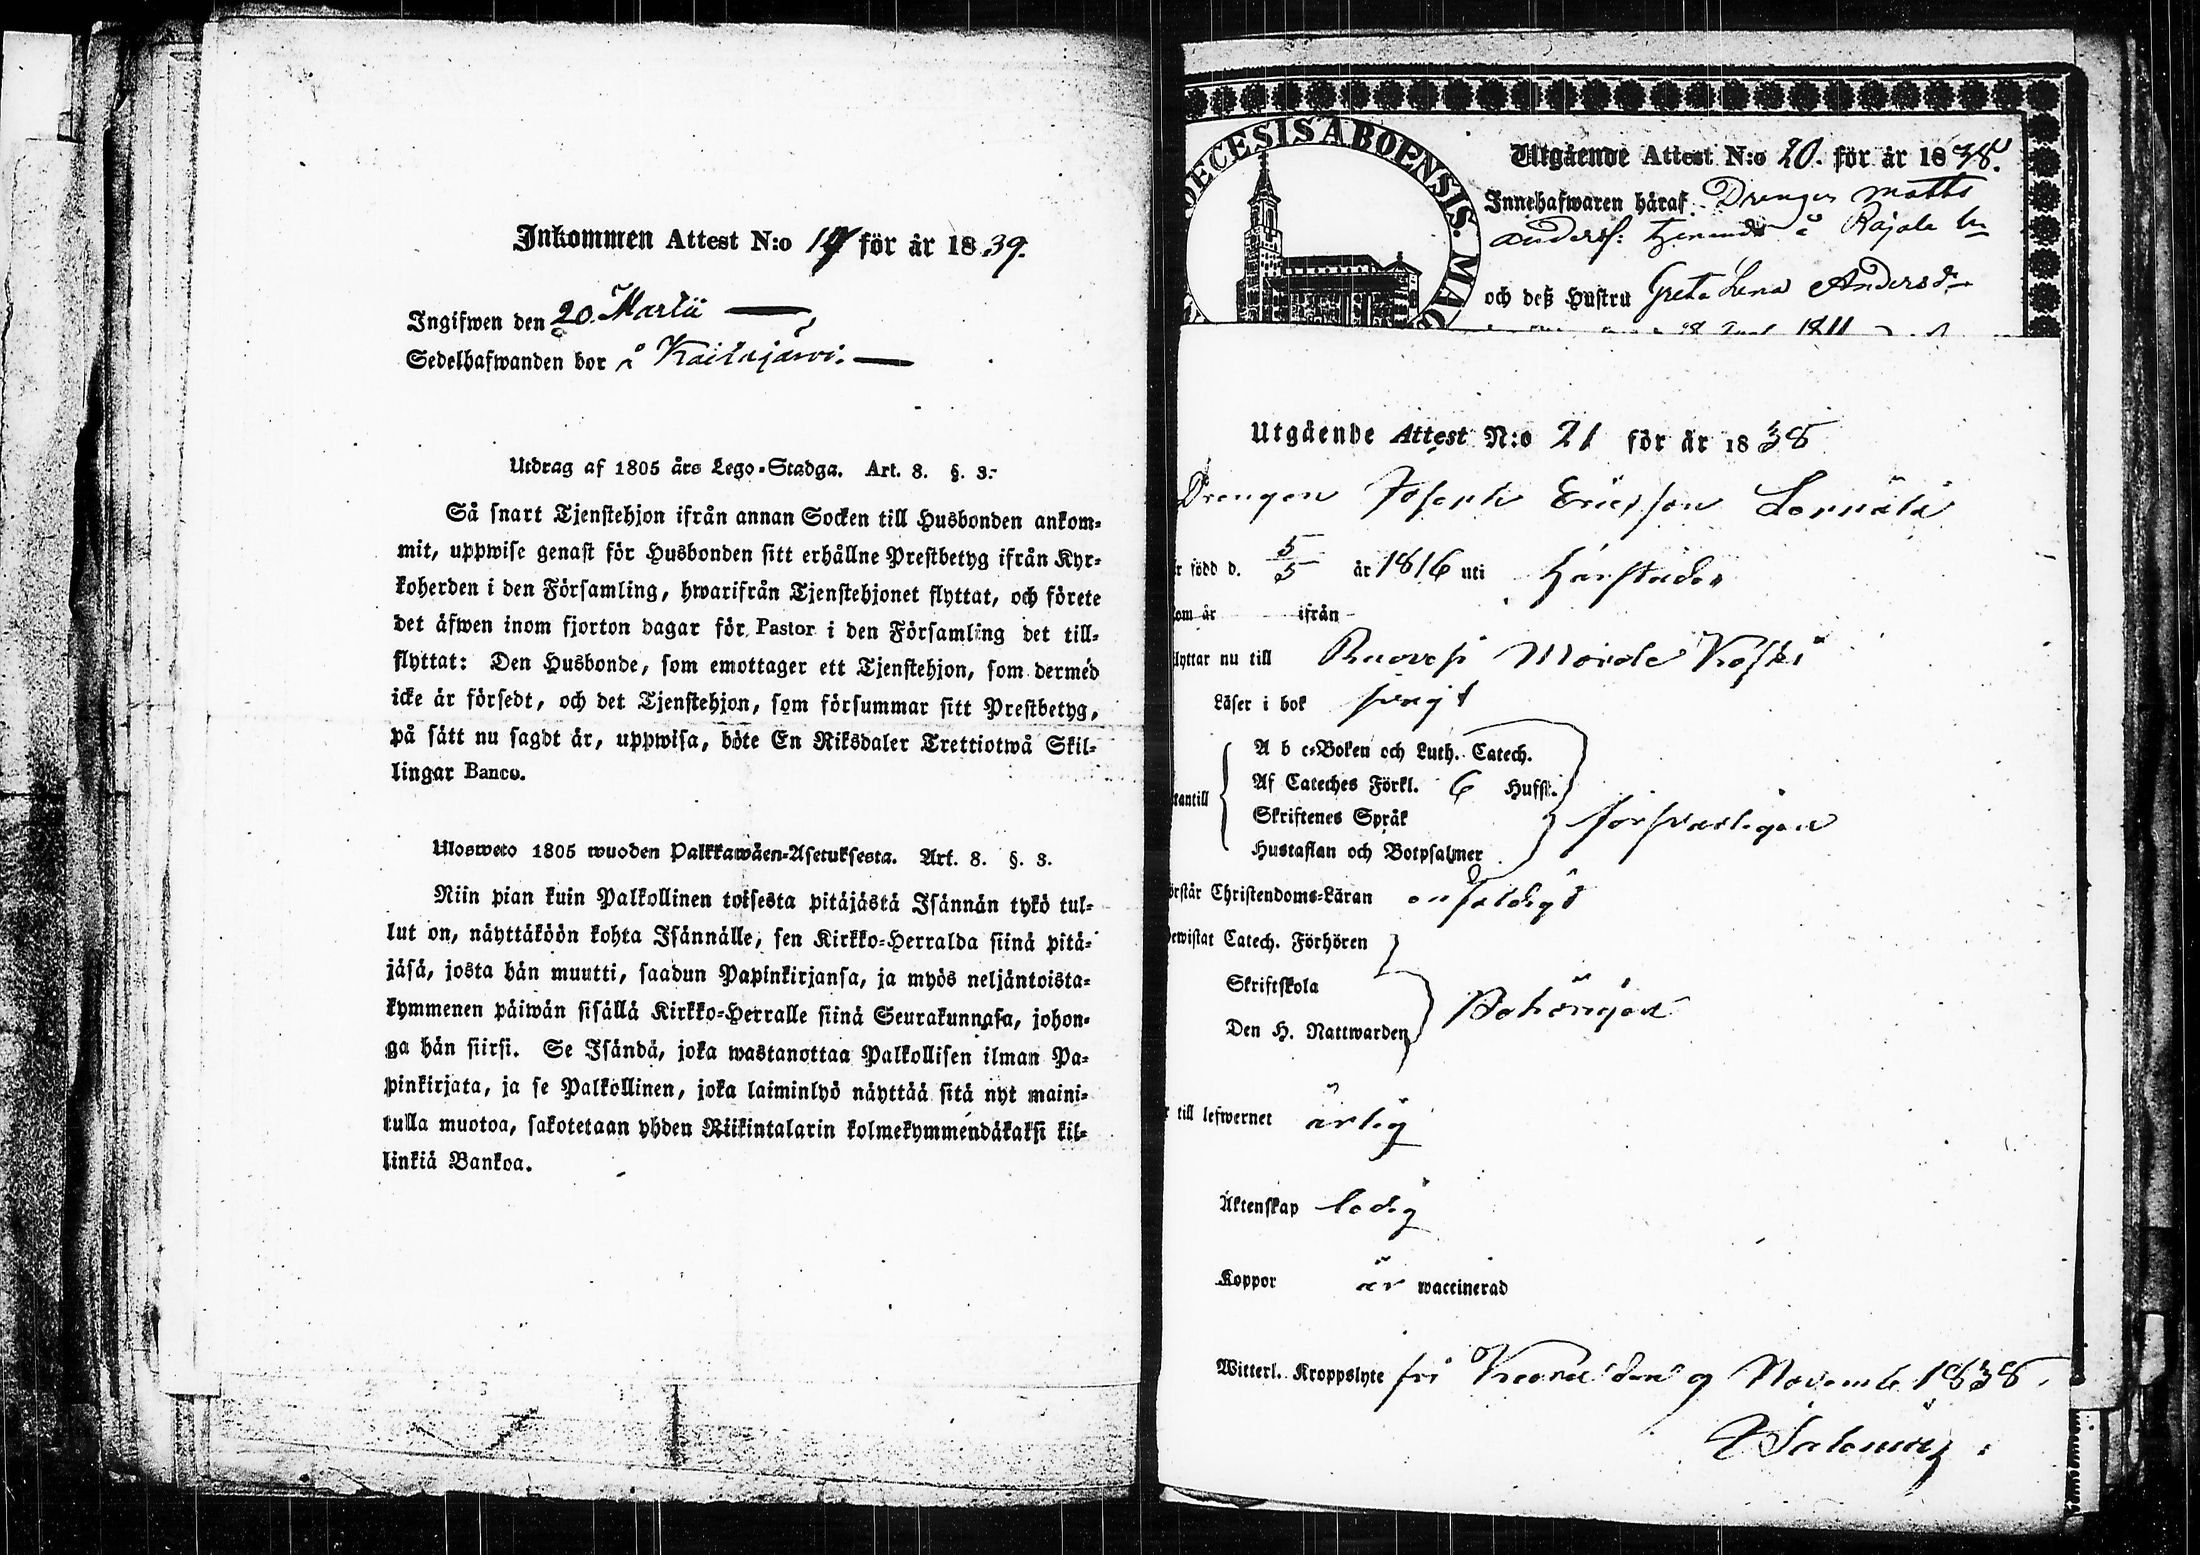 Inkommen Attest N:o 17 för år 1839.
Ingifwen den 20. Martii —
Sedelhafwanden bor å Kailajärvi. —
Utdrag af 1805 års Lego-Stadga. Art. 8. §. 3.
Så snart Tjenstehjon ifrån annan Socken till Husbonden ankom-
mit, uppwise genast för Husbonden sitt erhållne Prestbetyg ifrån Kyr-
koherden i den Församling, hwarifrån Tjenstehjonet flyttat, och förete
det äfwen inom fjorton dagar för Pastor i den Församling det till-
flyttat: Den Husbonde, som emottager ett Tjenstehjon, som dermed
icke är försedt, och det Tjenstehjon, som försummar sitt Prestbetyg,
på sätt nu sagdt är, uppwisa, böte En Riksdaler Trettiotwå Skil-
lingar Banco.
Ulosweto 1805 wuoden Palkkawäen-Asetuksesta. Art. 8. §. 3.
Niin pian kuin Palkollinen toisesta pitäjästä Isännän tykö tul-
lut on, näyttäköön kohta Isännälle, sen Kirkko-Herralda siinä pitä-
jäsä, josta hän muutti, saadun Papinkirjansa, ja myös neljäntoista-
kymmenen päiwän sisällä Kirkko-Herralle siinä Seurakunnasa, johon-
ga hän siirsi. Se Isändä, joka wastanottaa Palkollisen ilman Pa-
pinkirjata, ja se Palkollinen, joka laiminlyö näyttää sitä nyt maini-
tulla muotoa, sakotetaan yhden Riikintalarin kolmekymmendäkaksi kil-
linkiä Bankoa.
DECESIS ABOENSIS. MAG
Utgående Attest N:o 20. för år 1838.
Innehafwaren häraf Drengen Matts
Anderss: tjenande å Rajala
och deß Hustru Greta Lena Andersd:r
1811
Utgående Attest N:o 21 för år 1838
Drengen Joseph Ericsson
r född d. 5/5 år 1816 uti härstädes
om år ifrån
lyttar nu till Ruovesi Koski
Läser i bok svagt
A b c-Boken och Luth. Catech.
Af Cateches Förkl. 6 Hufst.
tantill
Skriftenes Språk försvarligen
Hustaflan och Botpsalmer
örstår Christendoms-Läran enfaldigt
bewistat Catech. Förhören
Skriftskola
Behörigen
Den H. Nattwarden
r till lefwernet ärlig
Äktenskap ledig
Koppor är waccinerad
Witterl. Kroppslyte fri den 9 November 1838.